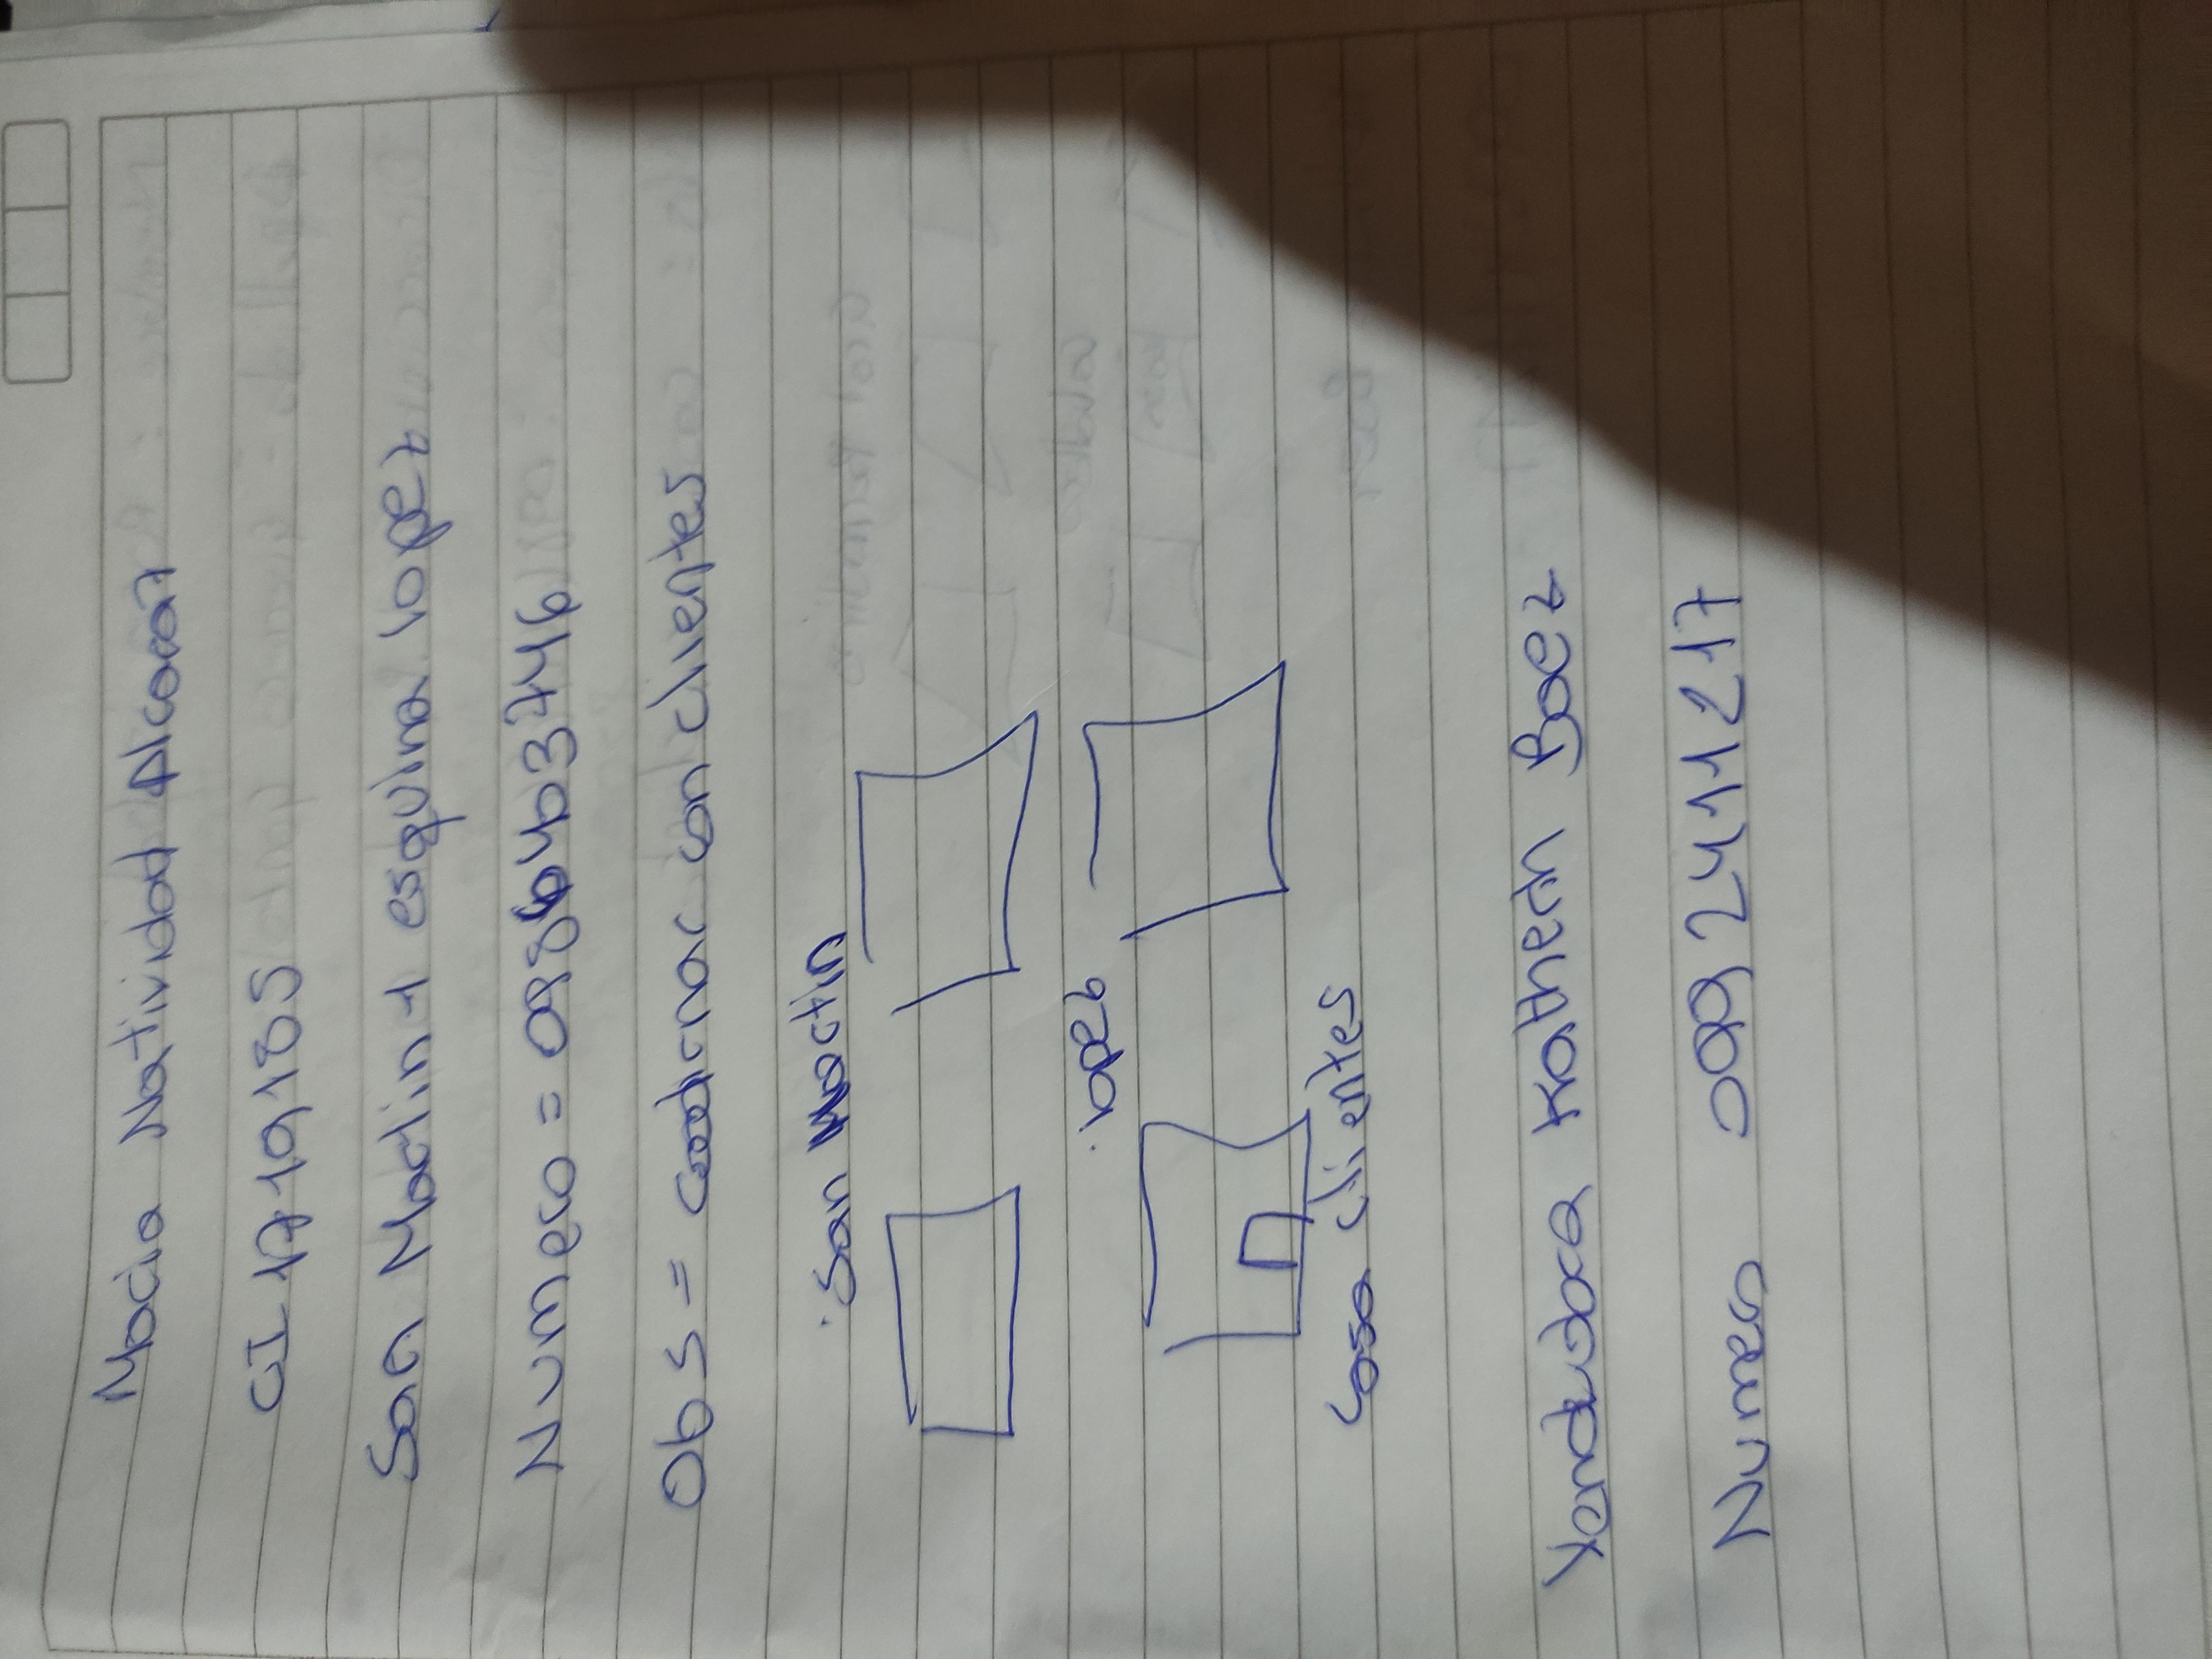 Maria Natividad Alcaraz
CI 1719,185
San Martin + esquina lopez
Numero = 0986463746
Obs = coordinar con clientes
.San Martin
.lopez
Casa clientes
Vendedora Katherin Baez
Numero 0982442717